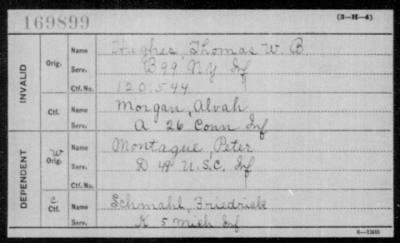 169899
(3-H-4)
INVALID
Orig. Name Hughes, Thomas W. B.
Serv. B 99 N.Y. Inf
Ctf. No. 120.544
Ctf. Name Morgan, Alvah
Serv. A 26 Conn Inf
DEPENDENT
Orig. Name Montague, Peter
Serv. D 48 U.S.C. Inf
Ctf. No.
Ctf. Name Schmahl, Friedrick
Serv. K 5 Mich Inf